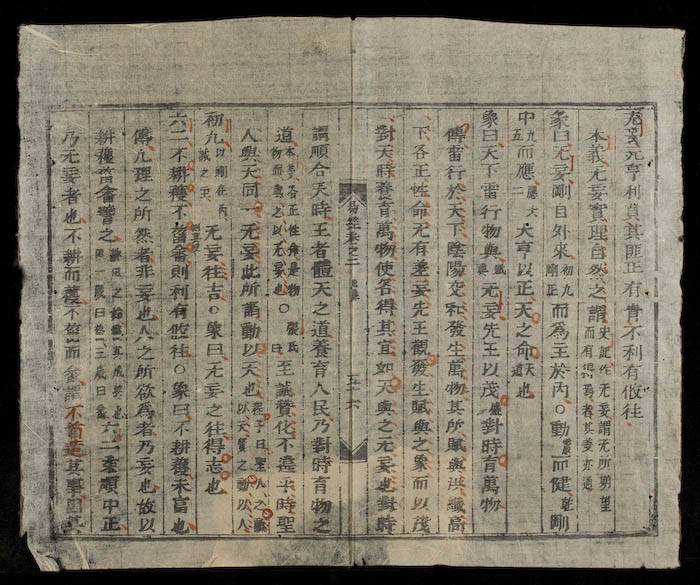 无妄元亨利貞其匪正有眚不利有攸往
本義无妄實理自然之謂史記作无妄謂无所期望而有得焉者其義亦通
彖曰无妄剛自外來初九剛正而為主於內○動震而健乾剛
中九五而應大亨以正天之命天道也
象曰天下雷行物與无妄先王以茂盛對時育萬物
傳雷行於天下陰陽交和發生萬物其所賦與洪纖高
下各正性命无有差妄先王觀發生賦與之象而以茂
對天時養育萬物使各得其宜如天與之无妄也對時
易經卷之二 三十六
謂順合天時王者體天之道養育人民乃對時育物之
道本義各正性命是物物而與之以无妄也○張氏曰至誠贊化不違乎時聖
人與天同一无妄此所謂動以天也程子曰聖人之動以天賢之動以人
初九以剛在內誠之主无妄往吉○象曰无妄之往得志也
六二不耕穫不菑畬則利有攸往○象曰不耕穫未富也
傳凡理之所然者非妄也人之所欲為者乃妄也故以
耕穫菑畬譬之耕農之始穫其成終也田一歲曰菑三歲曰畬六二柔順中正
乃无妄者也不耕而穫不菑而畬謂不首造其事因其